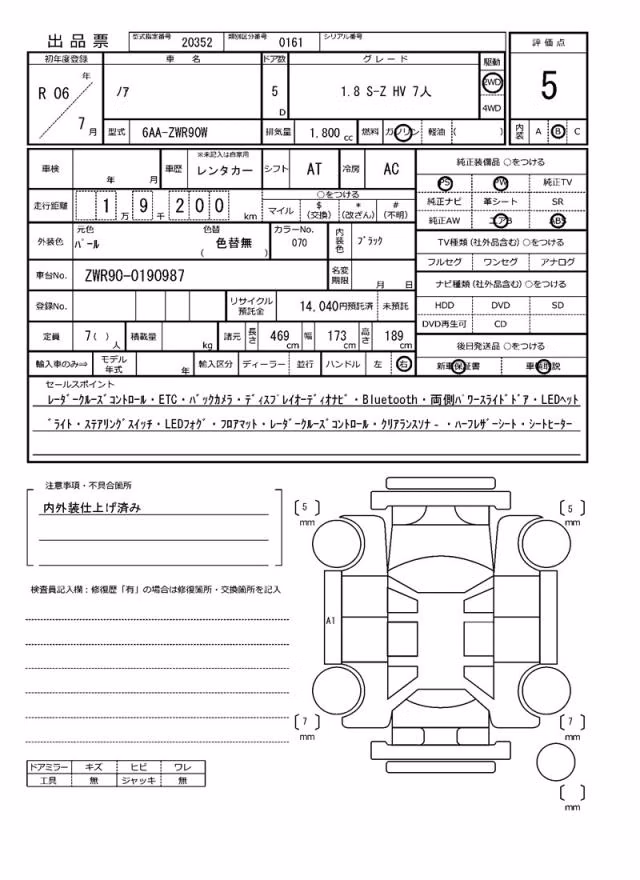 出品票 型式指定番号 20352 類別区分番号 0161 シリアル番号
初年度登録 車名 ドア数 グレード 駆動 評価点
R 06 年 7 月 ﾉｱ 5 D 1.8 S-Z HV 7人 2WD 4WD 5
型式 6AA-ZWR90W 排気量 1.800 cc 燃料 ガソリン 軽油 ( ) 内装 A B C
車検 年 月 車歴 ※未記入は自家用 レンタカー シフト AT 冷房 AC 純正装備品 ○をつける
PS PW 純正TV
走行距離 1 万 9 千 2 0 0 km ○をつける マイル $ (交換) * (改ざん) # (不明) 純正ナビ 革シート SR
純正AW エアB ABS
外装色 元色 ﾊﾟｰﾙ 色替 色替無 ( ) カラーNo. 070 内装色 ﾌﾞﾗｯｸ TV種類 (社外品含む) ○をつける
フルセグ ワンセグ アナログ
車台No. ZWR90-0190987 名変期限 月 日 ナビ種類 (社外品含む) ○をつける
登録No. リサイクル預託金 14,040円預託済 未預託 HDD DVD SD
DVD再生可 CD
定員 7( ) 人 積載量 kg 諸元 長さ 469 cm 幅 173 cm 高さ 189 cm 後日発送品 ○をつける
輸入車のみ⇨ モデル年式 年 輸入区分 ディーラー 並行 ハンドル 左 右 新車保証書 車輌取説
セールスポイント
ﾚｰﾀﾞｰｸﾙｰｽﾞｺﾝﾄﾛｰﾙ・ETC・ﾊﾞｯｸｶﾒﾗ・ﾃﾞｨｽﾌﾟﾚｲｵｰﾃﾞｨｵﾅﾋﾞ・Bluetooth・両側ﾊﾟﾜｰｽﾗｲﾄﾞﾄﾞｱ・LEDﾍｯﾄ
ﾞﾗｲﾄ・ｽﾃｱﾘﾝｸﾞｽｲｯﾁ・LEDﾌｫｸﾞ・ﾌﾛｱﾏｯﾄ・ﾚｰﾀﾞｰｸﾙｰｽﾞｺﾝﾄﾛｰﾙ・ｸﾘｱﾗﾝｽｿﾅｰ・ﾊｰﾌﾚｻﾞｰｼｰﾄ・ｼｰﾄﾋｰﾀｰ
注意事項・不具合箇所
内外装仕上げ済み
5 mm 5 mm
検査員記入欄：修復歴「有」の場合は修復箇所・交換箇所を記入
A1
7 mm 7 mm
ドアミラー キズ ヒビ ワレ
工具 無 ジャッキ 無
mm